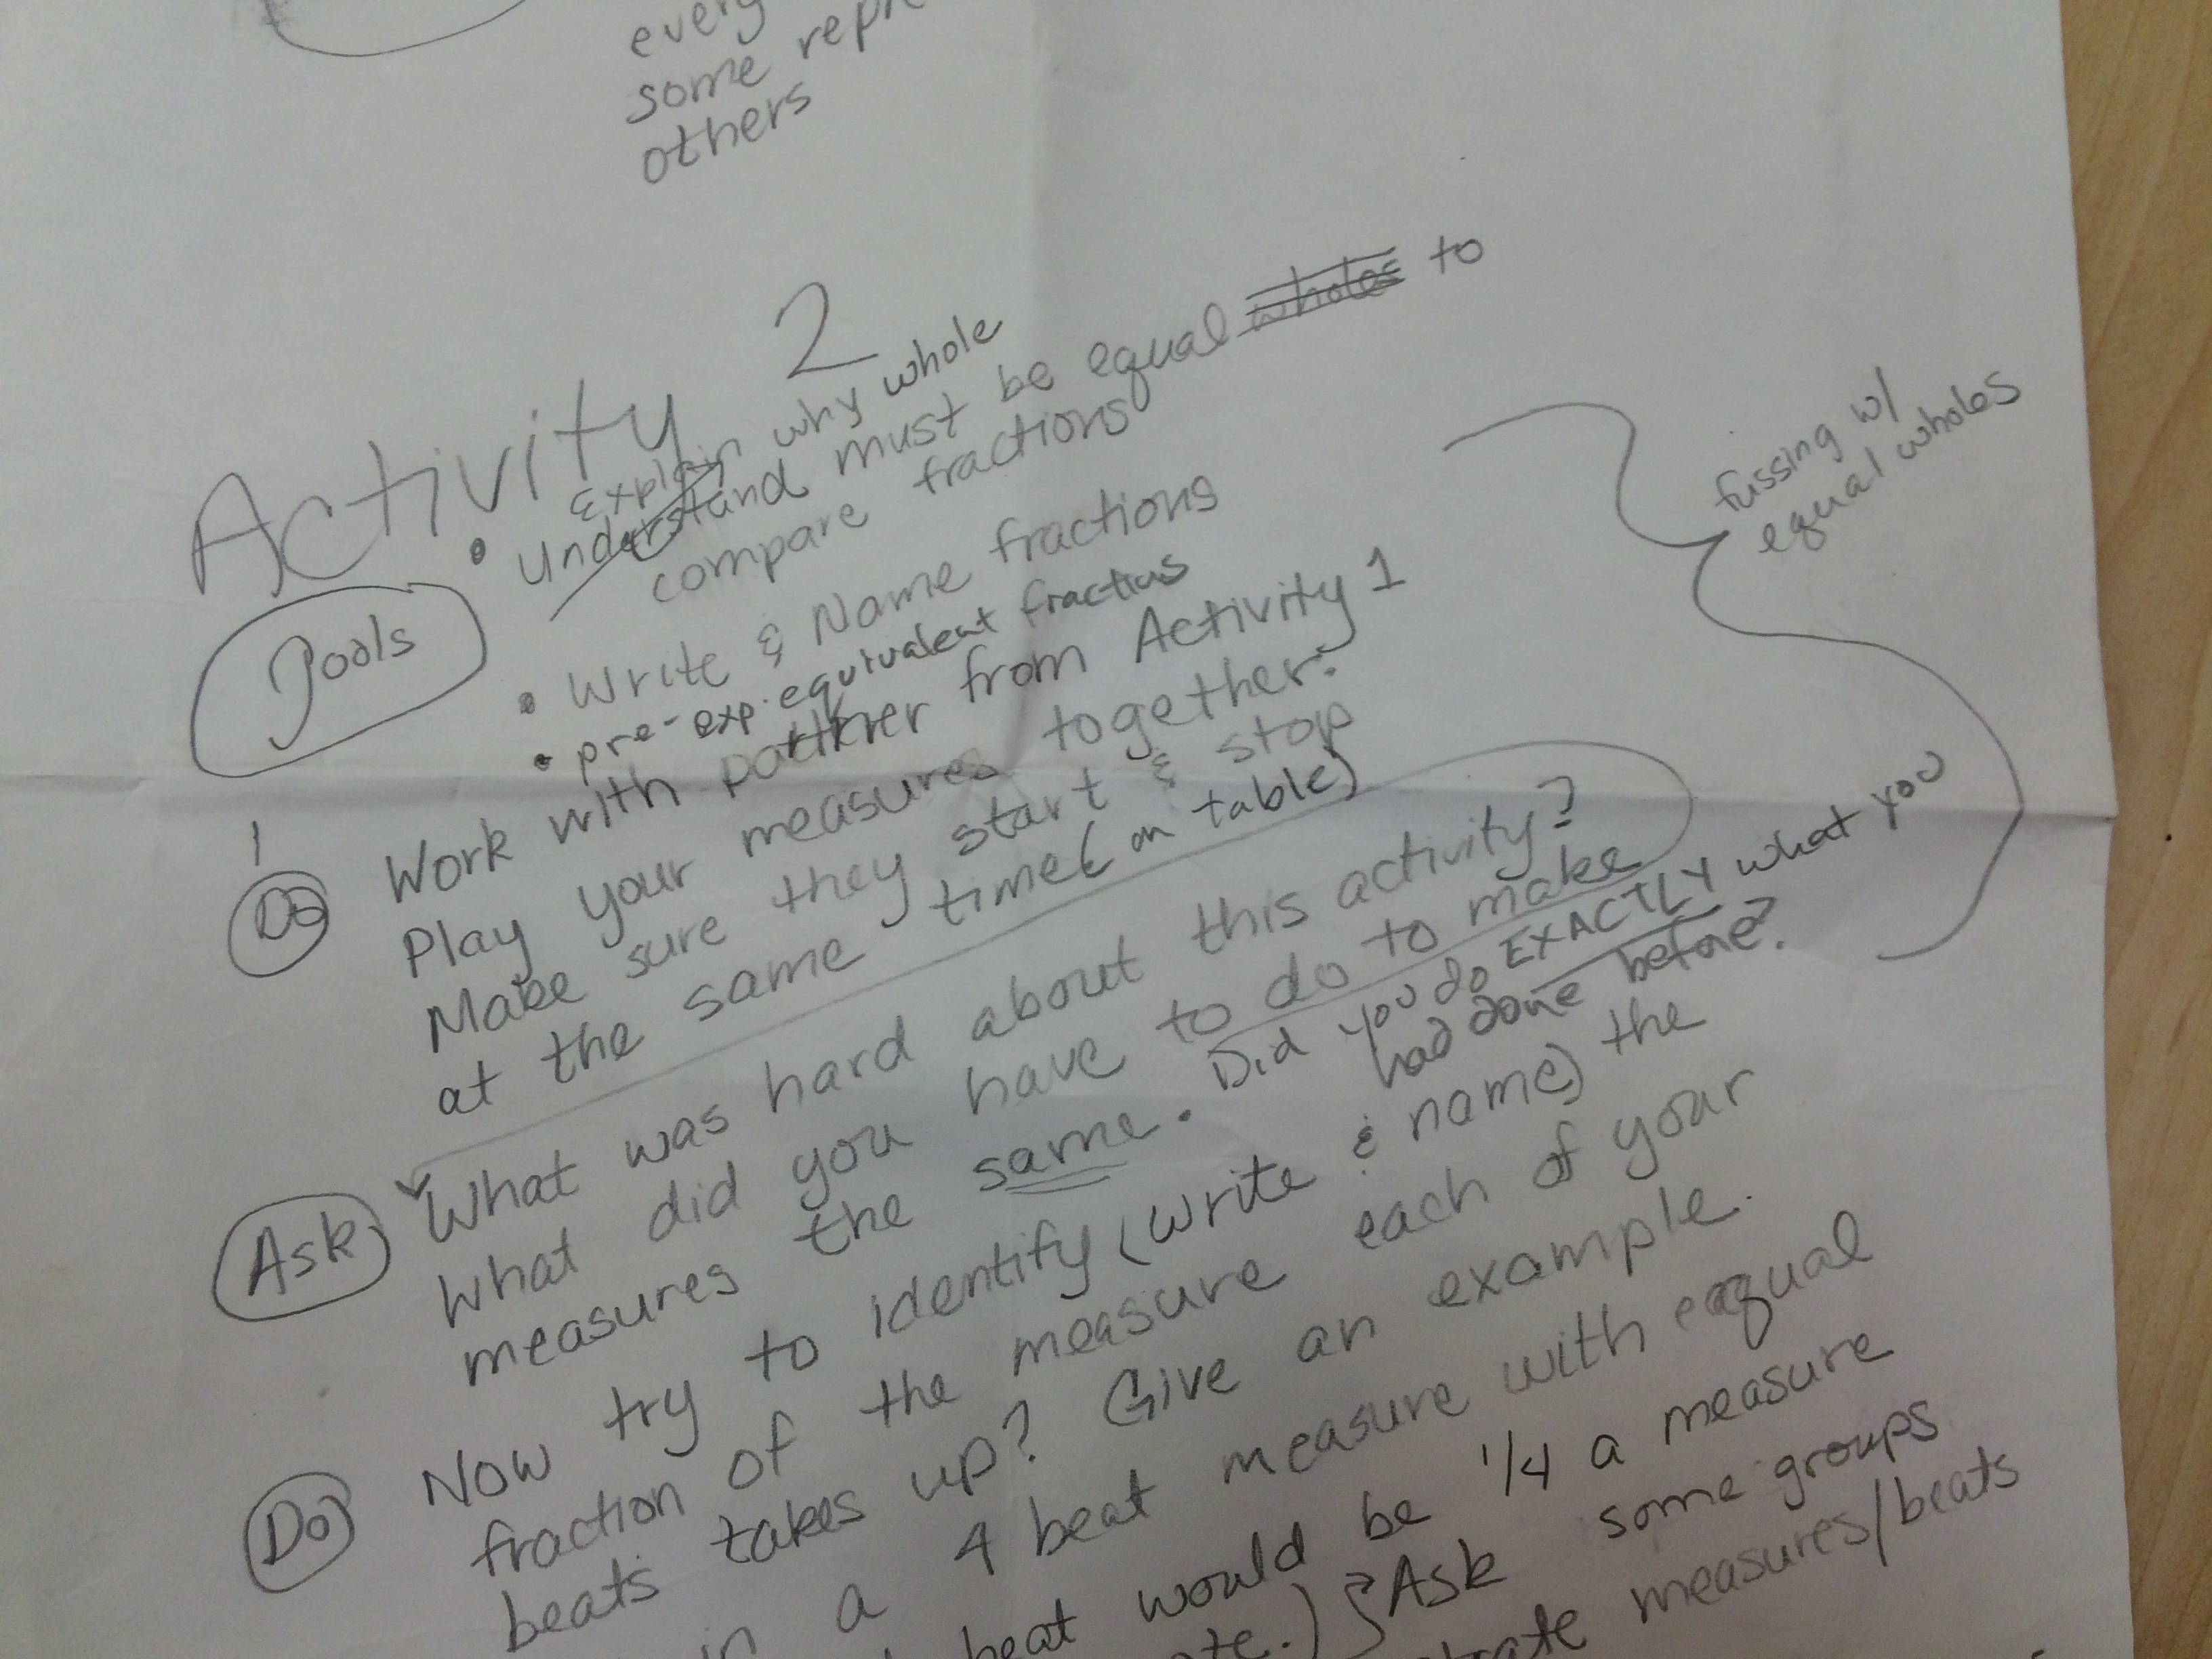 every
some
others
Activity 2
Goals
Explain why whole
• Understand must be equal wholes to
compare fractions
• Write & Name fractions
• pre-exp. equivalent fractions
fussing w/
equal wholes
1
Do Work with partner from Activity 1
Play your measures together.
Make sure they start & stop
at the same time (on table)
Ask What was hard about this activity?
What did you have to do to make
measures the same. Did you do EXACTLY what you
had done before?
Do Now try to identify (write & name) the
fraction of the measure each of your
beats takes up? Give an example.
in a 4 beat measure with equal
beat would be 1/4 a measure
Ask some groups
measures/beats